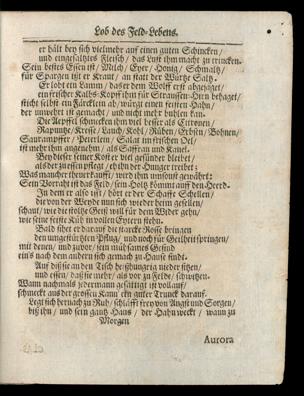 Lob des Feld-Lebens.
er hält bey sich vielmehr auf einen guten Schincken/
und eingesaltztes Fleisch/ das Lust ihm macht zu trincken.
Sein bestes Essen ist/ Milch/ Eyer/ Honig/ Schmaltz/
für Spargen ißt er Kraut/ an statt der Würtze Saltz.
Er lobt ein Lamm/ das er dem Wolff erst abgejaget/
ein frischer Kalbs-Kopf ihm für Straussen-Hirn behaget/
sticht selbst ein Färcklein ab/ würgt einen feisten Hahn/
der unwehrt ist gemacht/ und nicht mehr buhlen kan.
Die Aepffel schmecken ihm viel besser als Citronen/
Rapuntze/ Kresse/ Lauch/ Kohl/ Rüben/ Erbsen/ Bohnen/
Saurampffer/ Peterlein/ Salat im frischen Oel/
ist mehr ihm angenehm/ als Saffran und Kanel.
Bey dieser seiner Kost er viel gesünder bleibet/
als der zu essen pflegt/ eh ihn der Hunger treibet:
Was mancher theuer kaufft/ wird ihm umsonst gewährt:
Sein Vorraht ist das Feld/ sein Holtz kömmt auf den Heerd.
In dem er also isst/ hört er der Schaffe Schellen/
die von der Weyde nun sich wieder heim gesellen/
schaut/ wie die stoltze Geiß will für dem Wider gehn/
wie seine feiste Küh in vollen Eytern stehn.
Bald sihet er darauf die starcke Rosse bringen
den umgestürtzten Pflug/ und noch für Geilheit springen/
mit denen/ und zuvor/ sein mühsames Gesind
eins nach dem andern sich gemach zu Hause findt.
Auf daß sie an den Tisch heißhungrig nieder sitzen/
und essen/ daß sie mehr/ als vor zu Felde/ schwitzen.
Wann nachmals jedermann gesättigt ist vollauf/
schmeckt aus der grossen Kann ein guter Trunck darauf.
Legt sich hernach zu Ruh/ schläfft frey von Angst und Sorgen/
biß ihn/ und sein gantz Haus/ der Hahn weckt/ wann zu
Morgen
Aurora